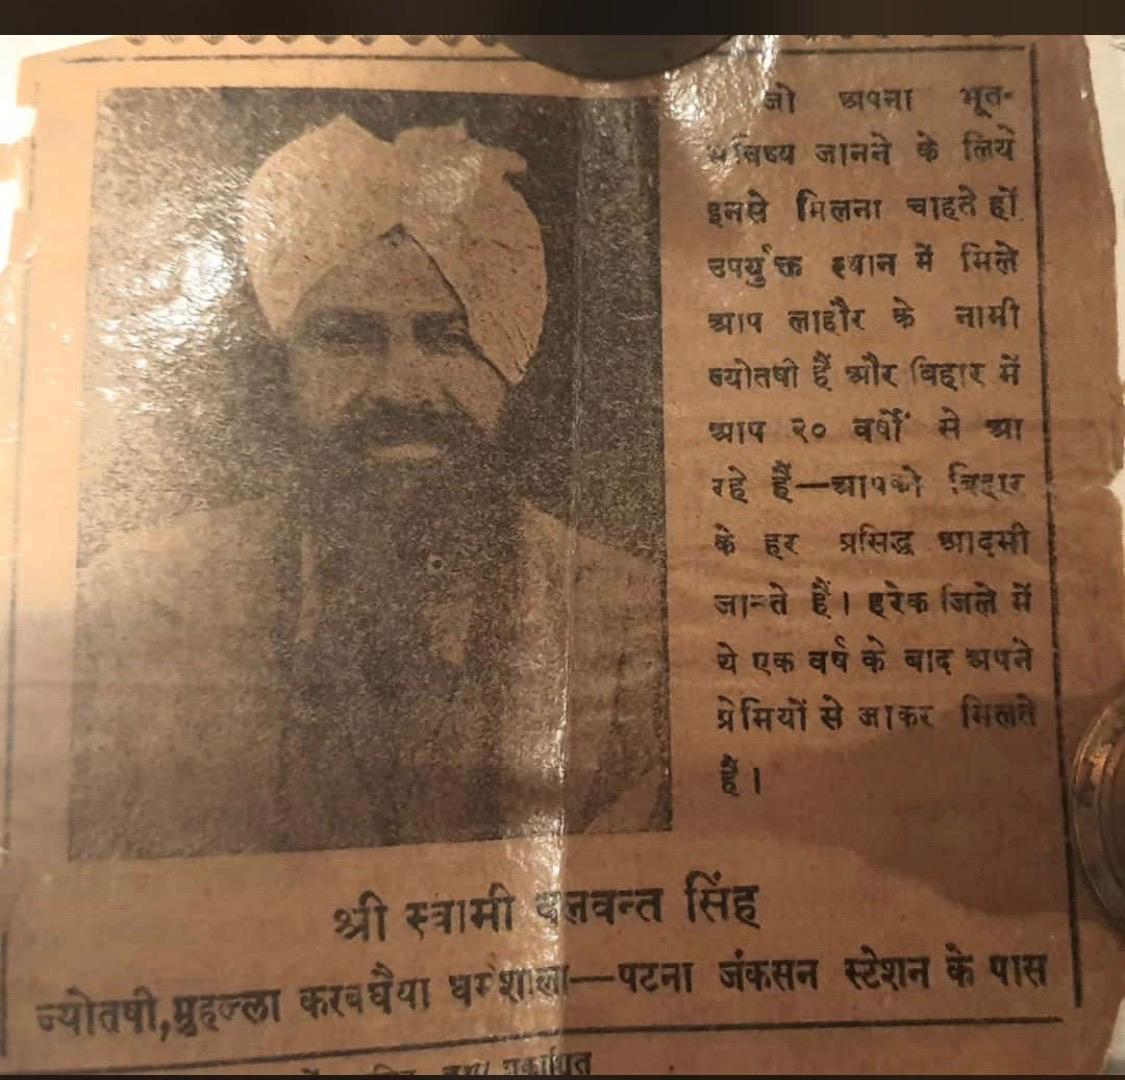 जो अपना भूत-
भविष्य जानने के लिये
इनसे मिलना चाहते हों
उपर्युक्त स्थान में मिले
आप लाहौर के नामी
ज्योतषी हैं और विहार में
आप २० वर्षों से आ
रहे हैं—आपको विहार
के हर प्रसिद्ध आदमी
जानते हैं। हरेक जिले में
ये एक वर्ष के बाद अपने
प्रेमियों से आकर मिलते
हैं।
श्री स्वामी वलवन्त सिंह
ज्योतषी,मुहल्ला करवघैया धर्मशाला—पटना जंकसन स्टेशन के पास